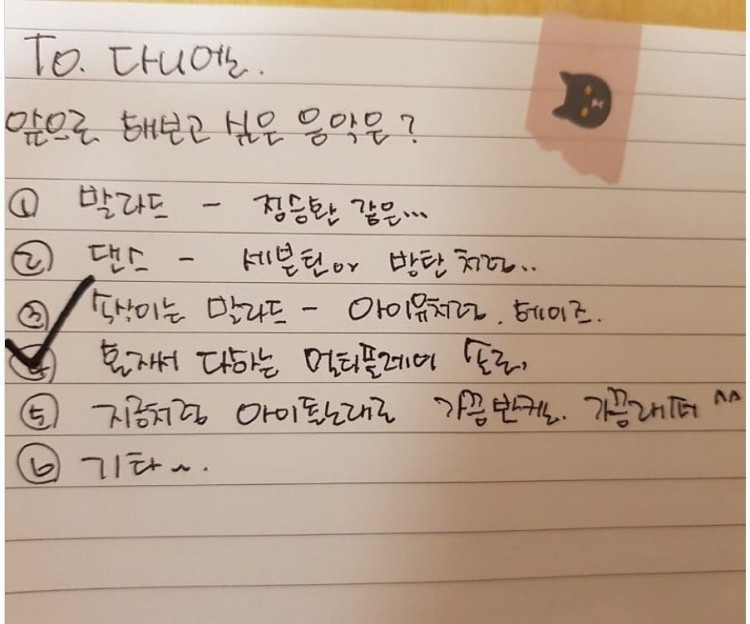 To. 다니엘.
앞으로 해보고 싶은 음악은?
① 발라드 - 정승환 같은...
② 댄스 - 세븐틴or 방탄처럼..
③ 속삭이는 발라드 - 아이유처럼. 헤이즈.
④ 혼자서 다하는 멀티플레이 솔로,
⑤ 지금처럼 아이돌노래로 가끔반커. 가끔래퍼 ^^
⑥ 기타~.